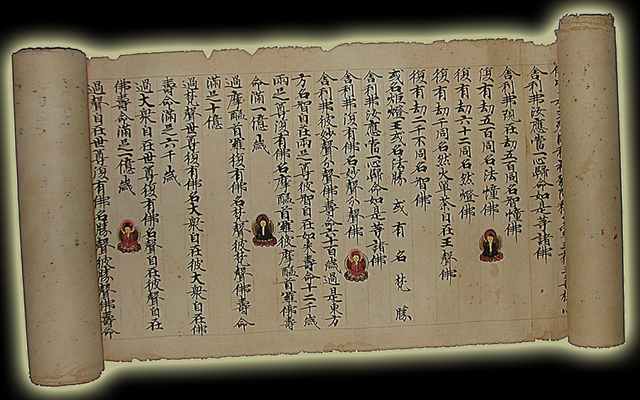 舍利弗汝應當一心歸命如是等諸佛
舍利弗現在劫五百同名智幢佛
復有劫五百同名法幢佛
復有劫六十二同名然燈佛
復有劫一千同名然火單荼自在王聲佛
復有劫二千不同名智佛
或名姬燈王或名法勝 或有名梵勝
舍利弗汝應當一心歸命如是等諸佛
舍利弗復有佛名妙聲分聲佛
舍利弗彼妙聲分聲佛壽命六十百歲過是東方
方名智自在兩足尊彼智自在如來壽命十二千歲
兩足尊復有佛名摩醯首羅彼摩醯首羅佛壽
命滿一億歲
過摩醯首羅世尊復有佛名梵聲彼梵聲佛壽命
滿足十億
過梵聲世尊復有佛名大衆自在彼大衆自在佛
壽命滿足六千歲
過大衆自在世尊復有佛名聲自在彼聲自在
佛壽命滿足一億歲
過聲自在世尊復有佛名勝聲彼勝聲佛壽命